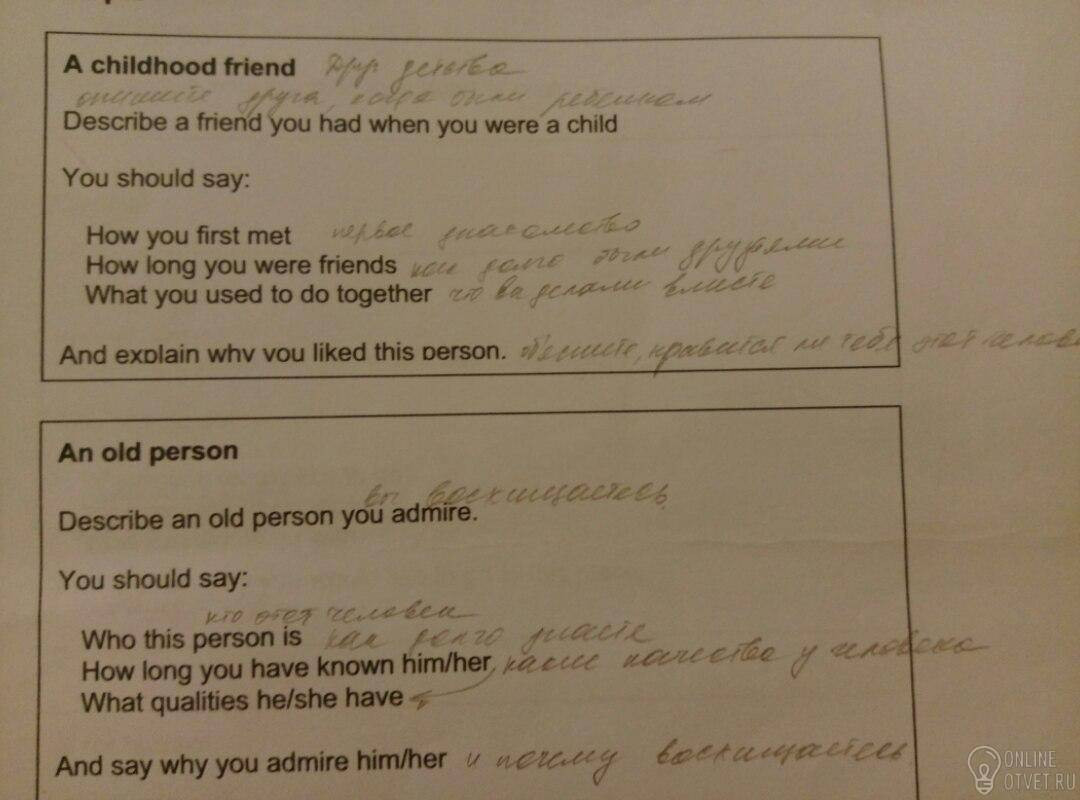 A childhood friend Друг детства
опишите друга, когда были ребенком
Describe a friend you had when you were a child
You should say:
How you first met первое знакомство
How long you were friends как долго были друзьями
What you used to do together что вы делали вместе
And explain why you liked this person. нравится ли тебе этот челове
An old person
вы восхищаетесь
Describe an old person you admire.
You should say:
кто этот человек
Who this person is как долго знаете
How long you have known him/her, какие качества у человека
What qualities he/she have
And say why you admire him/her и почему восхищаетесь
ONLINE
OTVET.RU